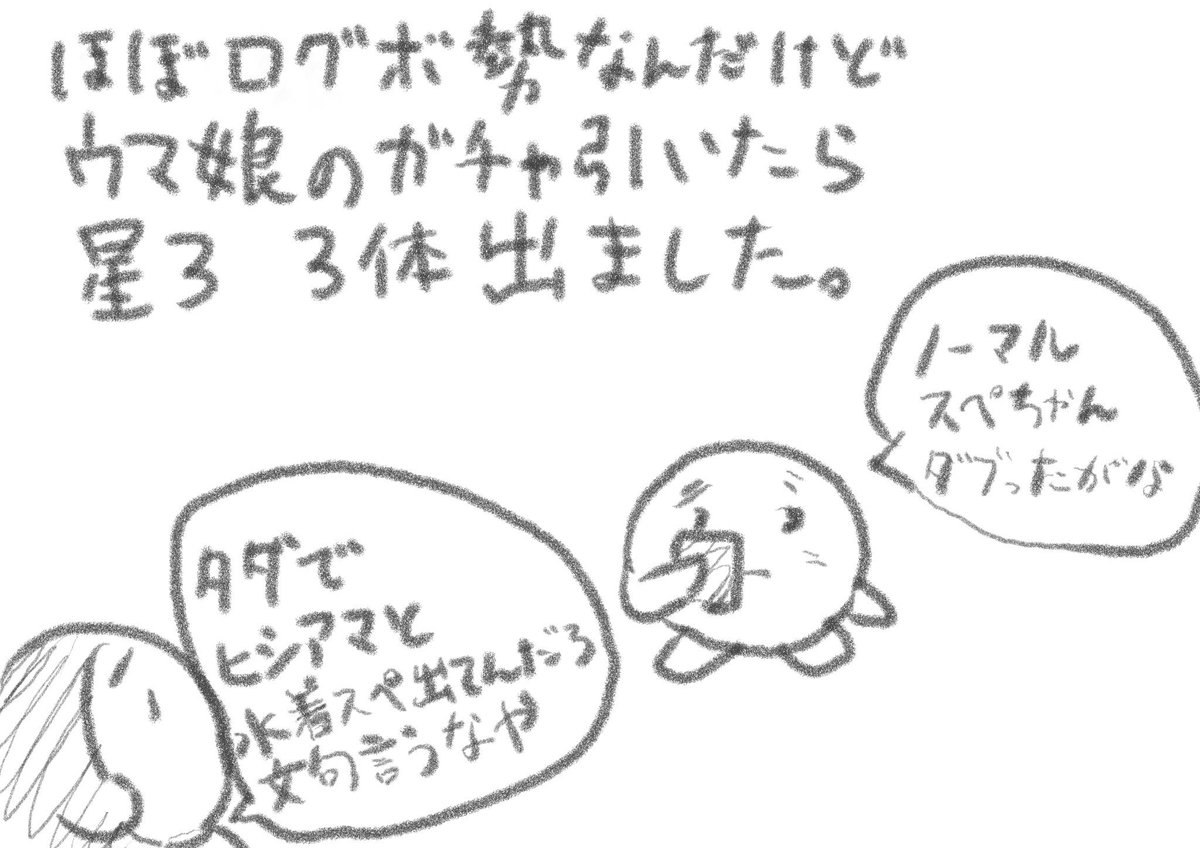 ほぼログボ勢なんだけど
ウマ娘のガチャ引いたら
星3 3体出ました。
ノーマル
スペちゃん
ダブったがな
タダで
ヒシアマと
水着スペ出てんだろ
文句言うなや